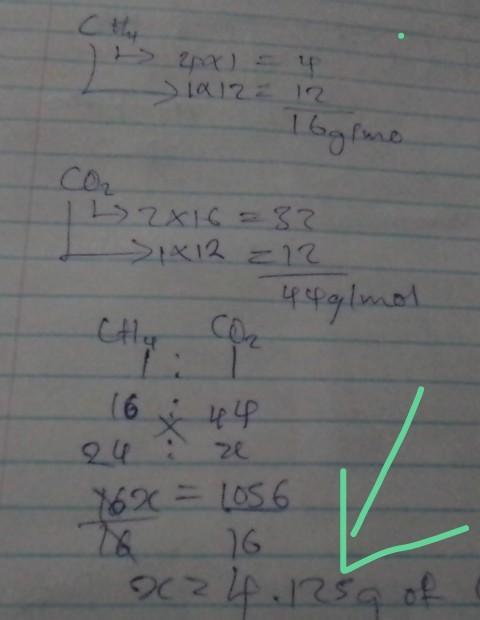 CH₄
4x1 = 4
1x12 = 12
16g/mo
CO₂
2x16 = 32
1x12 = 12
44g/mol
CH₄ CO₂
1 : 1
16 : 44
24 : x
16x = 1056
16 16
x = 4.125g of